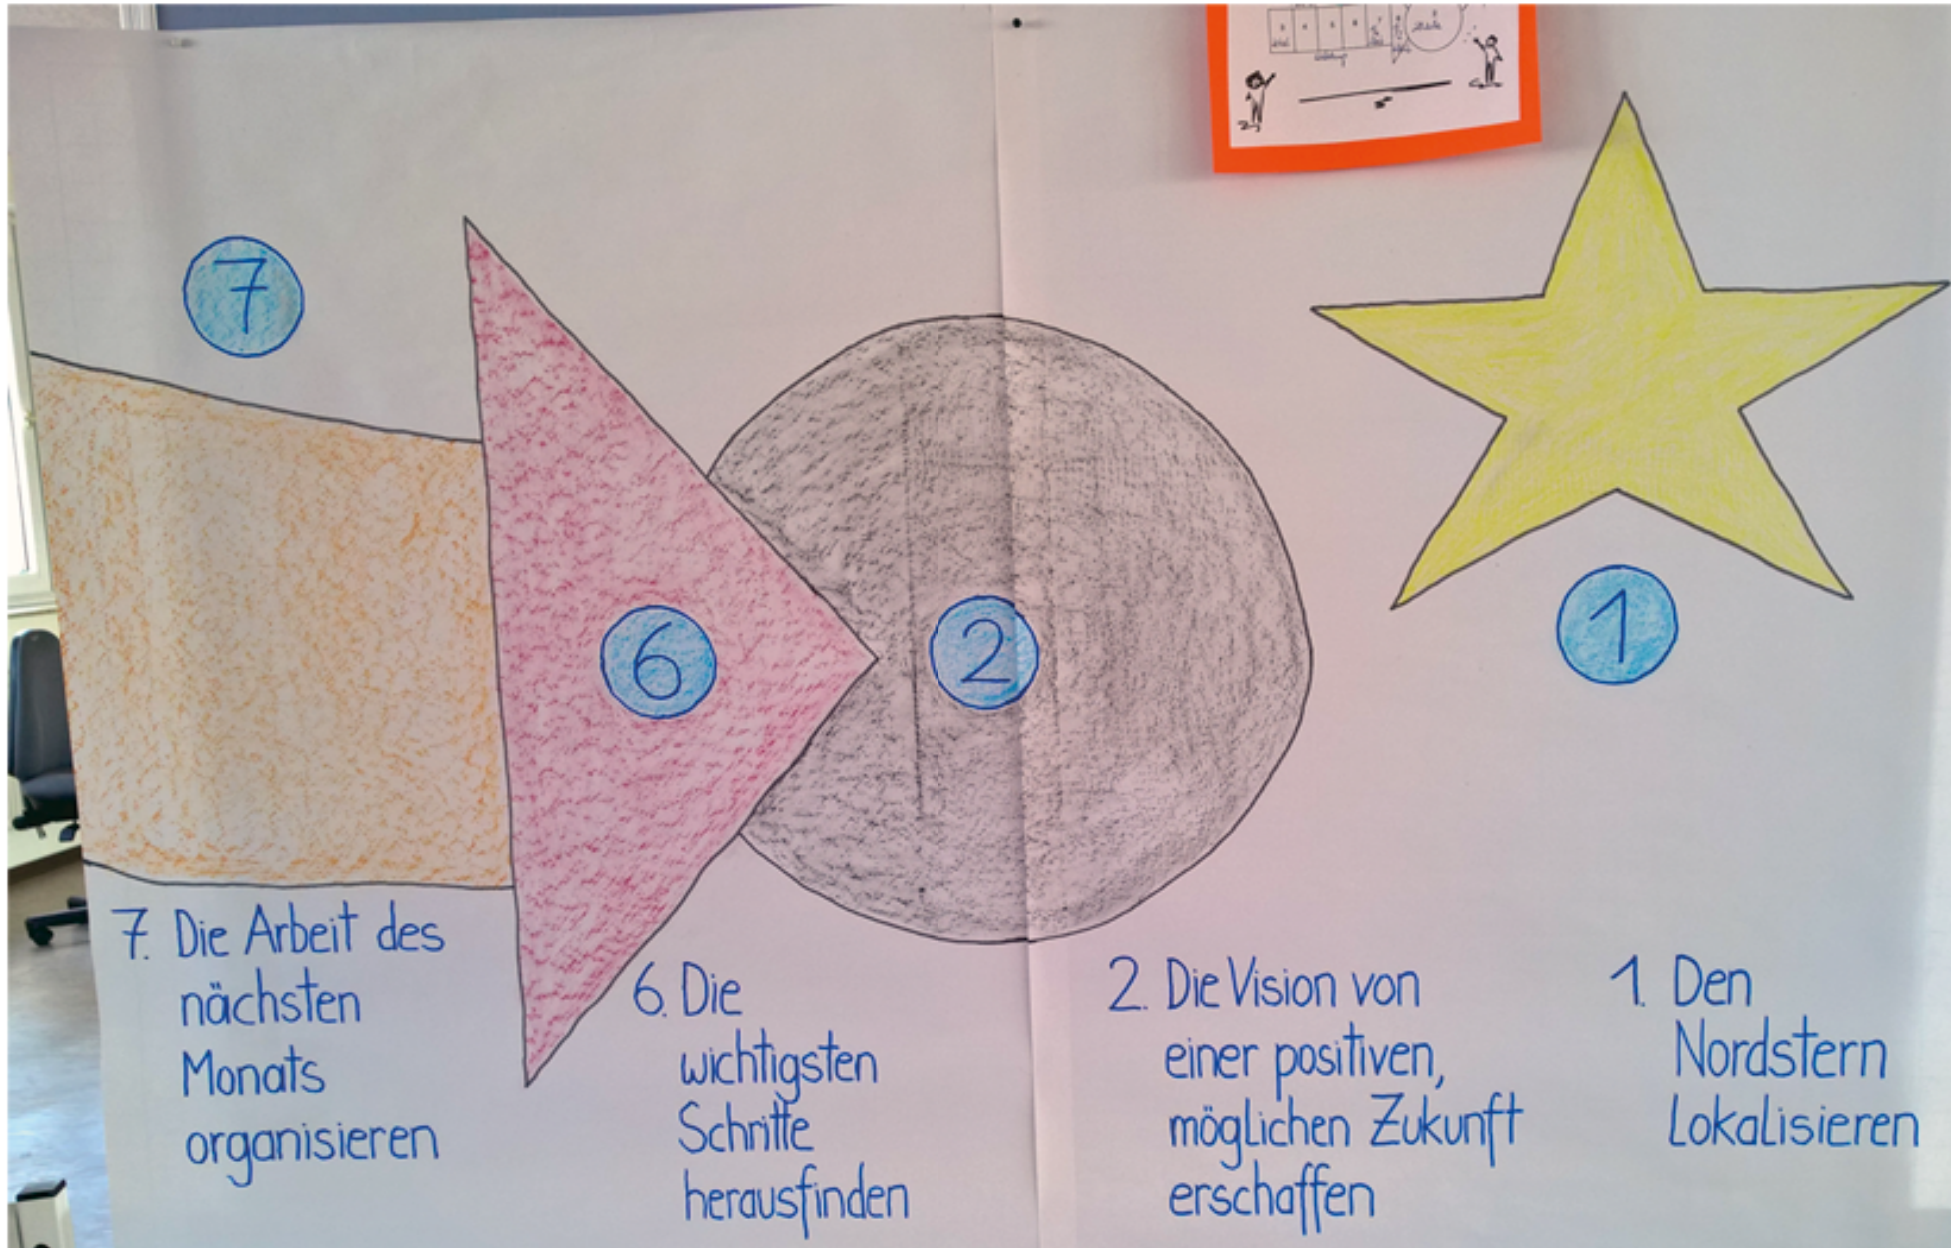 7
6
2
1
7. Die Arbeit des
nächsten
Monats
organisieren
6. Die
wichtigsten
Schritte
herausfinden
2. Die Vision von
einer positiven,
möglichen Zukunft
erschaffen
1. Den
Nordstern
Lokalisieren